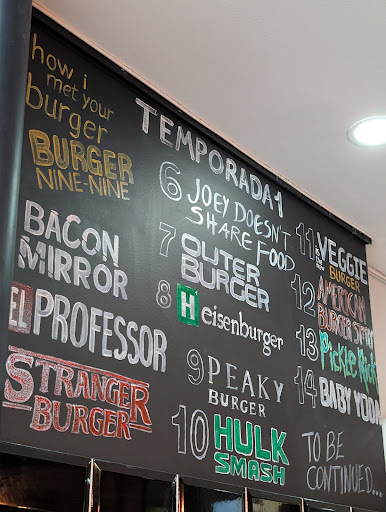 how i
met your
burger
BURGER
NINE-NINE
BACON
MIRROR
EL PROFESSOR
STRANGER
BURGER
TEMPORADA 1
6 JOEY DOESN'T
SHARE FOOD
7 OUTER
BURGER
8 Heisenburger
9 PEAKY
BURGER
10 HULK
SMASH
11 VEGGIE
BURGER
12 AMERICAN
BURGER STORY
13 Pickle Rick
14 BABY YODA
TO BE
CONTINUED...